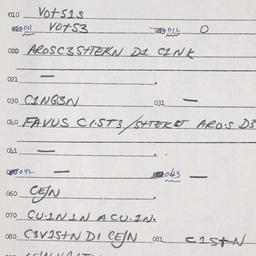 010 Vot51s
011 Vot53 012 O
020 AROSC3SHTEKN D1 C1NK
021 —
030 C1NG3N 031 —
040 FAVUS C1.ST3/SHTEK AROS D3
041 —
042 — 043 —
060 CE/N
070 CU.1N1N A CU.1N.
080 C3V1StN D1 CE/N 081 C1StN